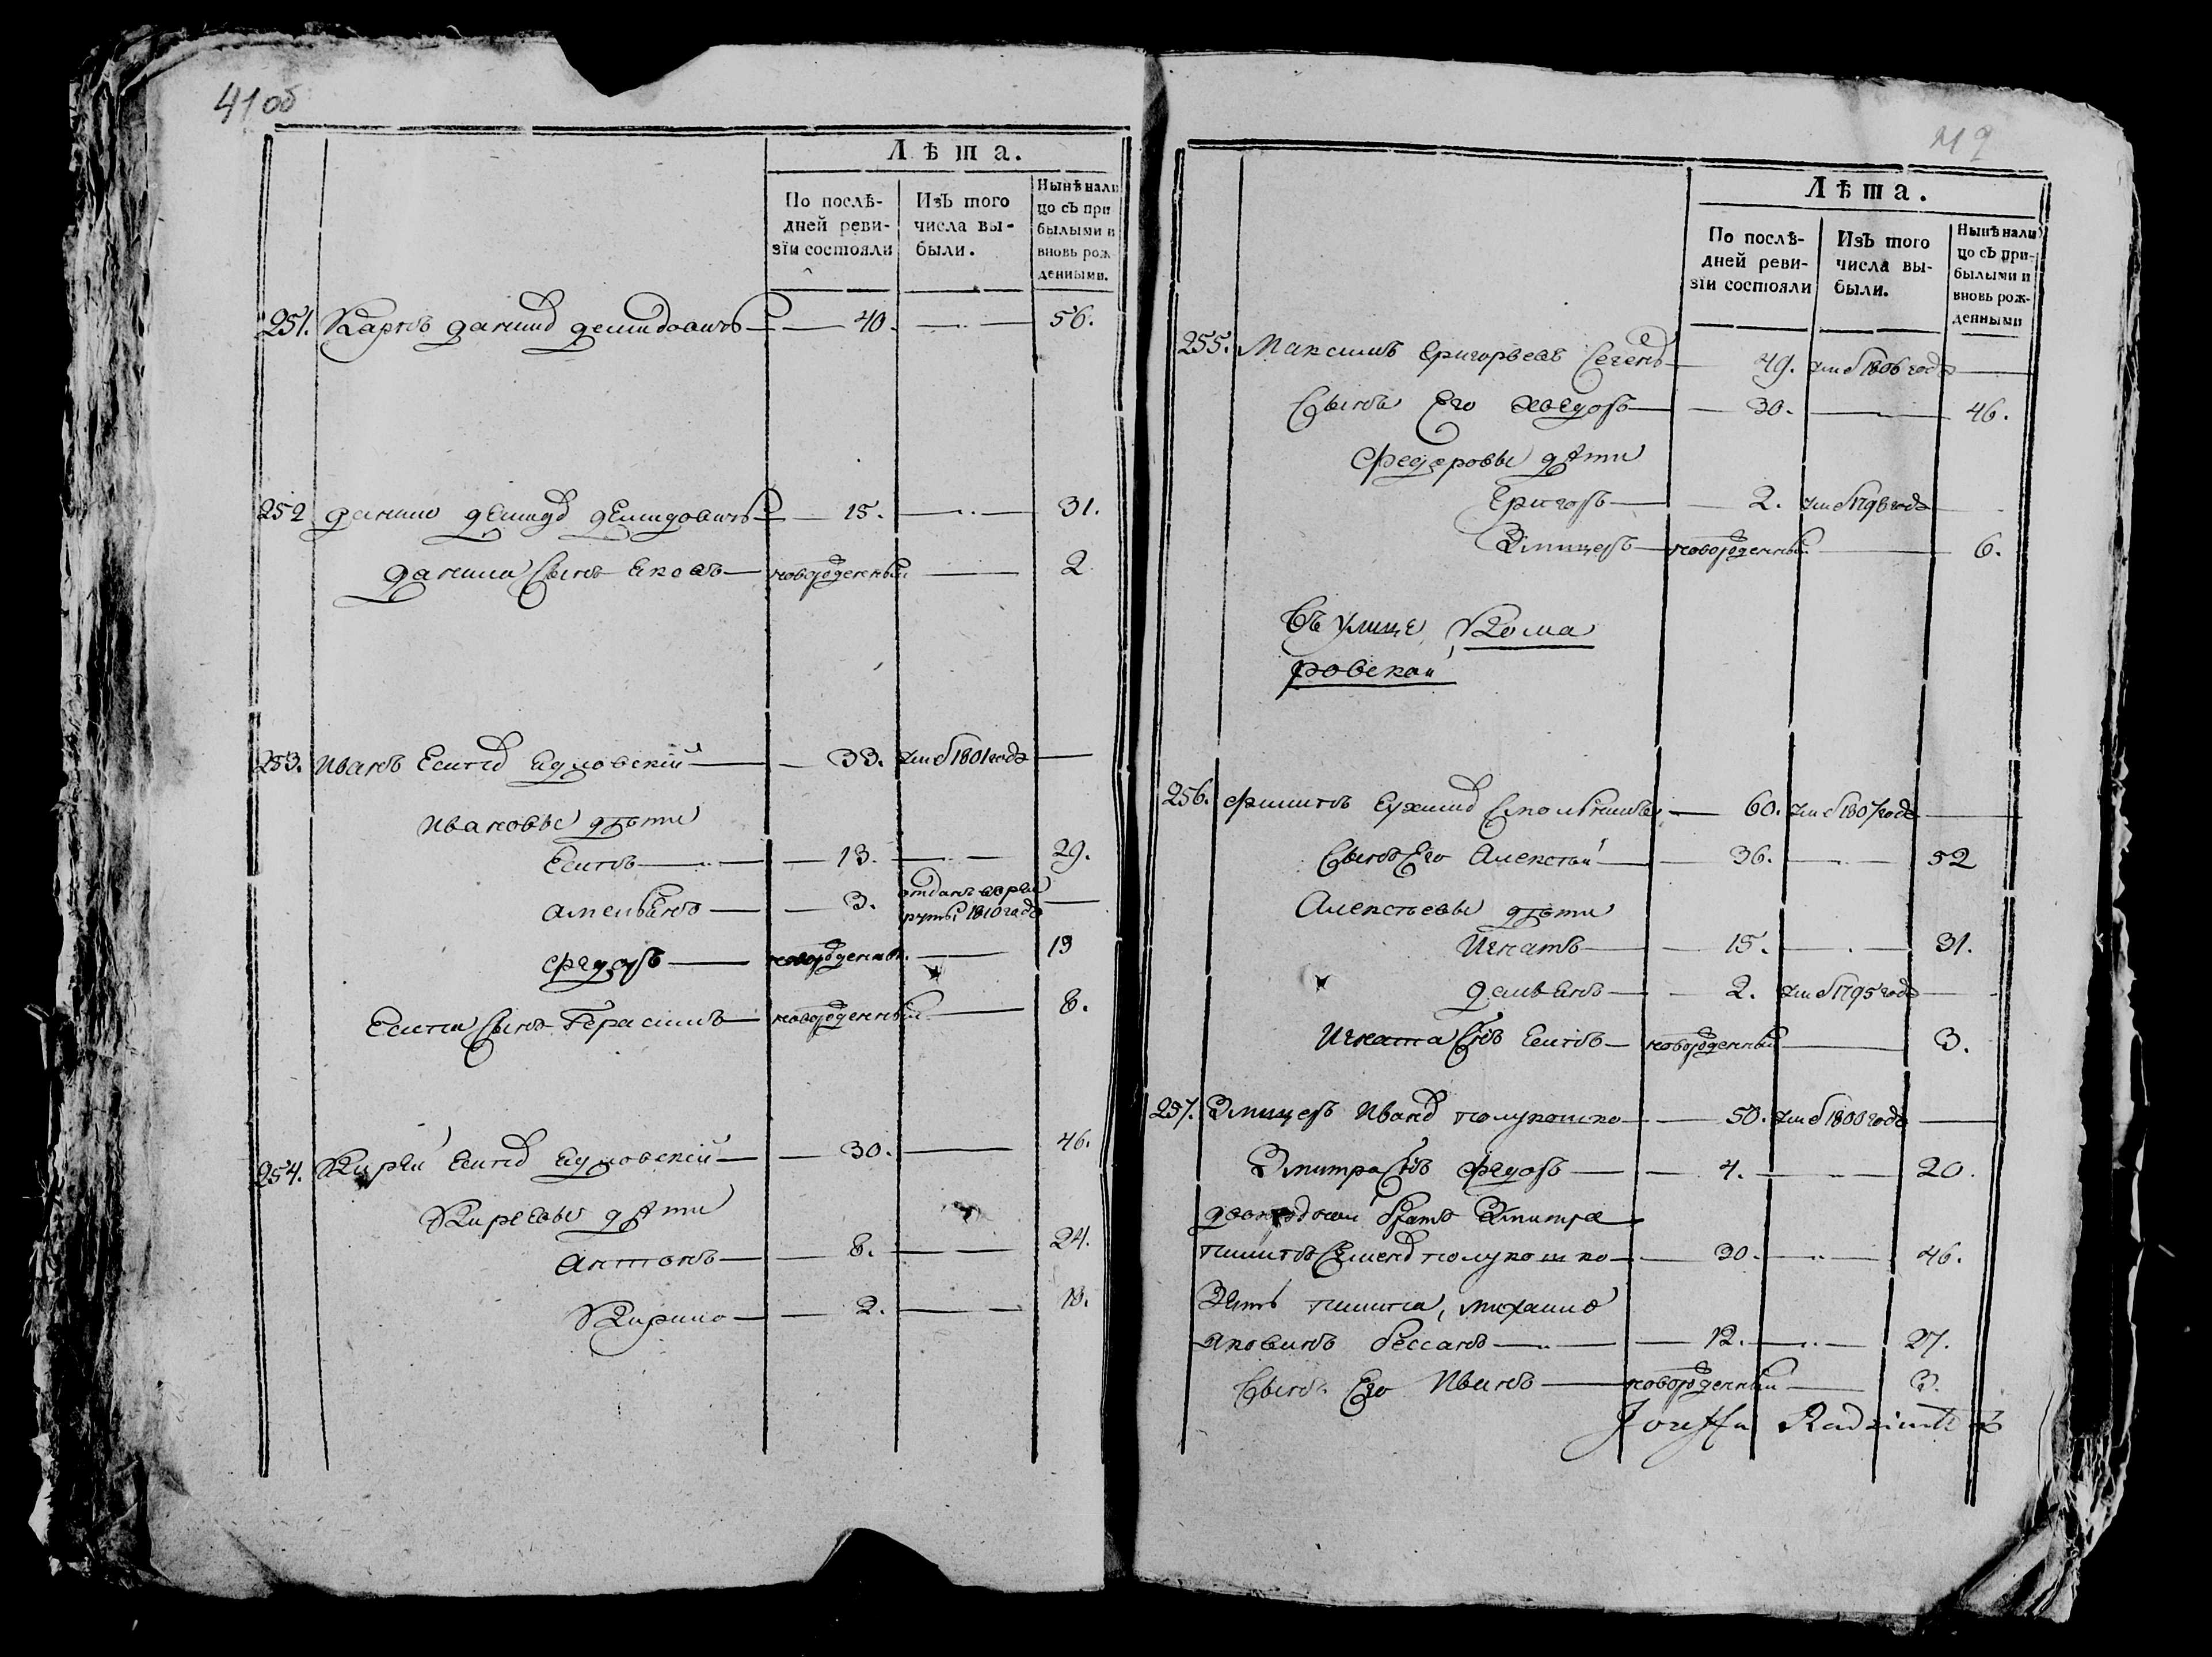 41 об
Лѣта.
По послѣ-
дней реви-
зїи состояли
Изъ того
числа вы-
были.
Нынѣ нали
цо съ при
былыми и
вновь рож
денными.
251. Карпъ данил демидовичъ — 40. — 56.
252 данило демид демидовичъ — 15. — 31.
данила Сынъ Яковъ — новорожденный — 2
253. Иванъ Есип — 33. ум 1801 года —
Ивановы дѣти
Есипъ — 13. — 29.
амельянъ — 3. отданъ рекруты 1810 года —
федоръ — новорожденный — 13
Есипа Сынъ Герасимъ — новорожденный — 8.
254. Кирей Есип — 30. — 46.
Киреевы дѣти
Антонъ — 8. — 24.
Кирило — 2. — 18.
42
Лѣта.
По послѣ-
дней реви-
зїи состояли
Изъ того
числа вы-
были.
Нынѣ нали
цо съ при-
былыми и
вновь рож-
денными
255. Максимъ Григорьевъ — 49. ум 1806 года —
Сынъ Его — 30. — 46.
Федоровы дѣти
Григоръ — 2. ум 1798 года —
Дмитеръ — новорожденный — 6.
Въ улице Кома
ровской
256. Филипъ — 60. ум 1807 года —
Сынъ Его Алексѣй — 36. — 52
Алексѣевы дѣти
Игнатъ — 15. — 31.
демьянъ — 2. ум 1795 года —
Игната Снъ Есипъ — новорожденный — 3.
257. Дмитеръ Иван полукошко — 50. ум 1800 года —
Дмитра Снъ Федоръ — 4. — 20.
двоюродный братъ Дмитра
пилипъ Семен полукошко — 30. — 46.
Зять пилипа, михаило
Яковинъ бессанъ — 12. — 27.
Сынъ Его Иванъ — новорожденный — 3.